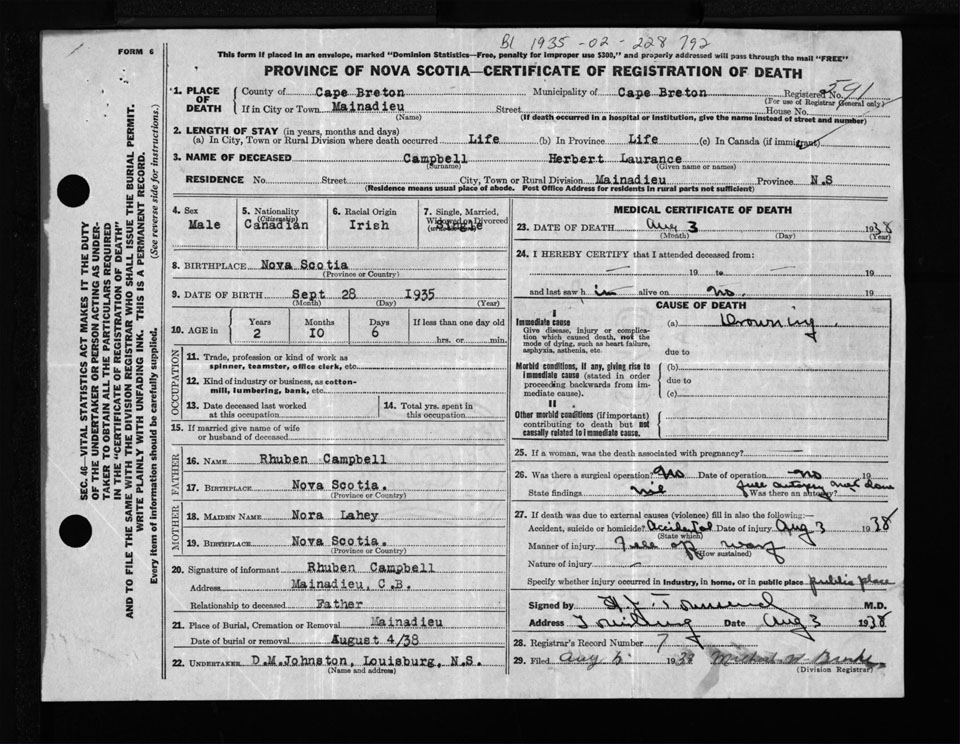 Bl 1935-02-228 792
FORM 6
This form if placed in an envelope, marked "Dominion Statistics—Free, penalty for improper use $300," and properly addressed will pass through the mail "FREE"
PROVINCE OF NOVA SCOTIA—CERTIFICATE OF REGISTRATION OF DEATH
SEC. 46—VITAL STATISTICS ACT MAKES IT THE DUTY
OF THE UNDERTAKER OR PERSON ACTING AS UNDER-
TAKER TO OBTAIN ALL THE PARTICULARS REQUIRED
IN THE "CERTIFICATE OF REGISTRATION OF DEATH"
AND TO FILE THE SAME WITH THE DIVISION REGISTRAR WHO SHALL ISSUE THE BURIAL PERMIT.
WRITE PLAINLY WITH UNFADING INK. THIS IS A PERMANENT RECORD.
Every item of information should be carefully supplied. (See reverse side for instructions.)
1. PLACE OF DEATH County of Cape Breton Municipality of Cape Breton Registered No. 591
(For use of Registrar General only)
If in City or Town Mainadieu Street House No.
(Name) (If death occurred in a hospital or institution, give the name instead of street and number)
2. LENGTH OF STAY (in years, months and days)
(a) In City, Town or Rural Division where death occurred Life (b) In Province Life (c) In Canada (if immigrant)
3. NAME OF DECEASED Campbell Herbert Laurance
(Surname) (Given name or names)
RESIDENCE No. Street City, Town or Rural Division Mainadieu Province N.S
(Residence means usual place of abode. Post Office Address for residents in rural parts not sufficient)
4. Sex Male
5. Nationality (Citizenship) Canadian
6. Racial Origin Irish
7. Single, Married, Widowed or Divorced Single
8. BIRTHPLACE Nova Scotia
(Province or Country)
9. DATE OF BIRTH Sept 28 1935
(Month) (Day) (Year)
10. AGE in Years Months Days If less than one day old
2 10 6 hrs. or min.
OCCUPATION
11. Trade, profession or kind of work as
spinner, teamster, office clerk, etc.
12. Kind of industry or business, as cotton-
mill, lumbering, bank, etc.
13. Date deceased last worked
at this occupation
14. Total yrs. spent in
this occupation
15. If married give name of wife
or husband of deceased
FATHER
16. NAME Rhuben Campbell
17. BIRTHPLACE Nova Scotia.
(Province or Country)
MOTHER
18. MAIDEN NAME Nora Lahey
19. BIRTHPLACE Nova Scotia.
(Province or Country)
20. Signature of informant Rhuben Campbell
Address Mainadieu, C.B.
Relationship to deceased Father
21. Place of Burial, Cremation or Removal Mainadieu
Date of burial or removal August 4/38
22. UNDERTAKER D.M.Johnston, Louisburg, N.S.
(Name and address)
MEDICAL CERTIFICATE OF DEATH
23. DATE OF DEATH Aug 3 1938
(Month) (Day) (Year)
24. I HEREBY CERTIFY that I attended deceased from:
— 19 to — 19
and last saw h im alive on no. 19
CAUSE OF DEATH
I
Immediate cause
Give disease, injury or complica-
tion which caused death, not the
mode of dying, such as heart failure,
asphyxia, asthenia, etc.
(a) Drowning.
due to
Morbid conditions, if any, giving rise to
immediate cause (stated in order
proceeding backwards from im-
mediate cause).
(b)
due to
(c)
II
Other morbid conditions (if important)
contributing to death but not
causally related to immediate cause.
25. If a woman, was the death associated with pregnancy?
26. Was there a surgical operation? No Date of operation no 19
State findings nil Was there an autopsy? full autopsy not done
27. If death was due to external causes (violence) fill in also the following:
Accident, suicide or homicide? Accidental Date of injury Aug 3 1938
(State which)
Manner of injury Fell off warf
(How sustained)
Nature of injury —
Specify whether injury occurred in industry, in home, or in public place public place
Signed by M.D.
Address Louisburg Date Aug 3 1938
28. Registrar's Record Number 7
29. Filed Aug 1938
(Division Registrar)